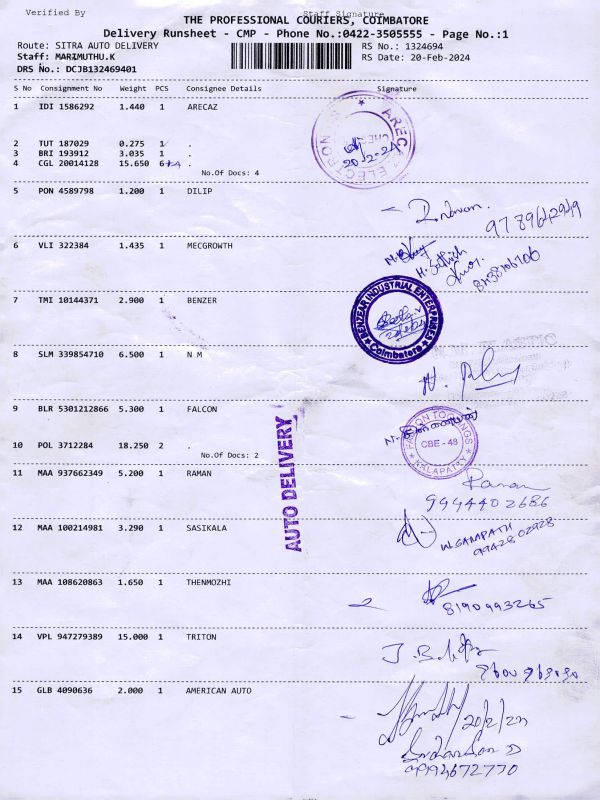 Verified By
Staff Signature
THE PROFESSIONAL COURIERS, COIMBATORE
Delivery Runsheet - CMP - Phone No.:0422-3505555 - Page No.:1
Route: SITRA AUTO DELIVERY
RS No.: 1324694
Staff: MARIMUTHU.K
RS Date: 20-Feb-2024
DRS No.: DCJB132469401
S No Consignment No Weight PCS Consignee Details Signature
1 IDI 1586292 1.440 1 ARECAZ
2 TUT 187029 0.275 1 .
3 BRI 193912 3.035 1 .
4 CGL 20014128 15.650 6 .
No.Of Docs: 4
20-2-24
5 PON 4589798 1.200 1 DILIP
9789642949
6 VLI 322384 1.435 1 MECGROWTH
7 TMI 10144371 2.900 1 BENZER
BENZEAR INDUSTRIAL ENTERPRISES
Coimbatore
8 SLM 339854710 6.500 1 N M
9 BLR 5301212866 5.300 1 FALCON
FALCON TOOLINGS
CBE - 48
KALAPATTY
10 POL 3712284 18.250 2 .
No.Of Docs: 2
AUTO DELIVERY
11 MAA 937662349 5.200 1 RAMAN
Raman
9994402686
12 MAA 100214981 3.290 1 SASIKALA
W.GANAPATH
9942802928
13 MAA 108620863 1.650 1 THENMOZHI
8190993265
14 VPL 947279389 15.000 1 TRITON
15 GLB 4090636 2.000 1 AMERICAN AUTO
20/2/24
9994672770